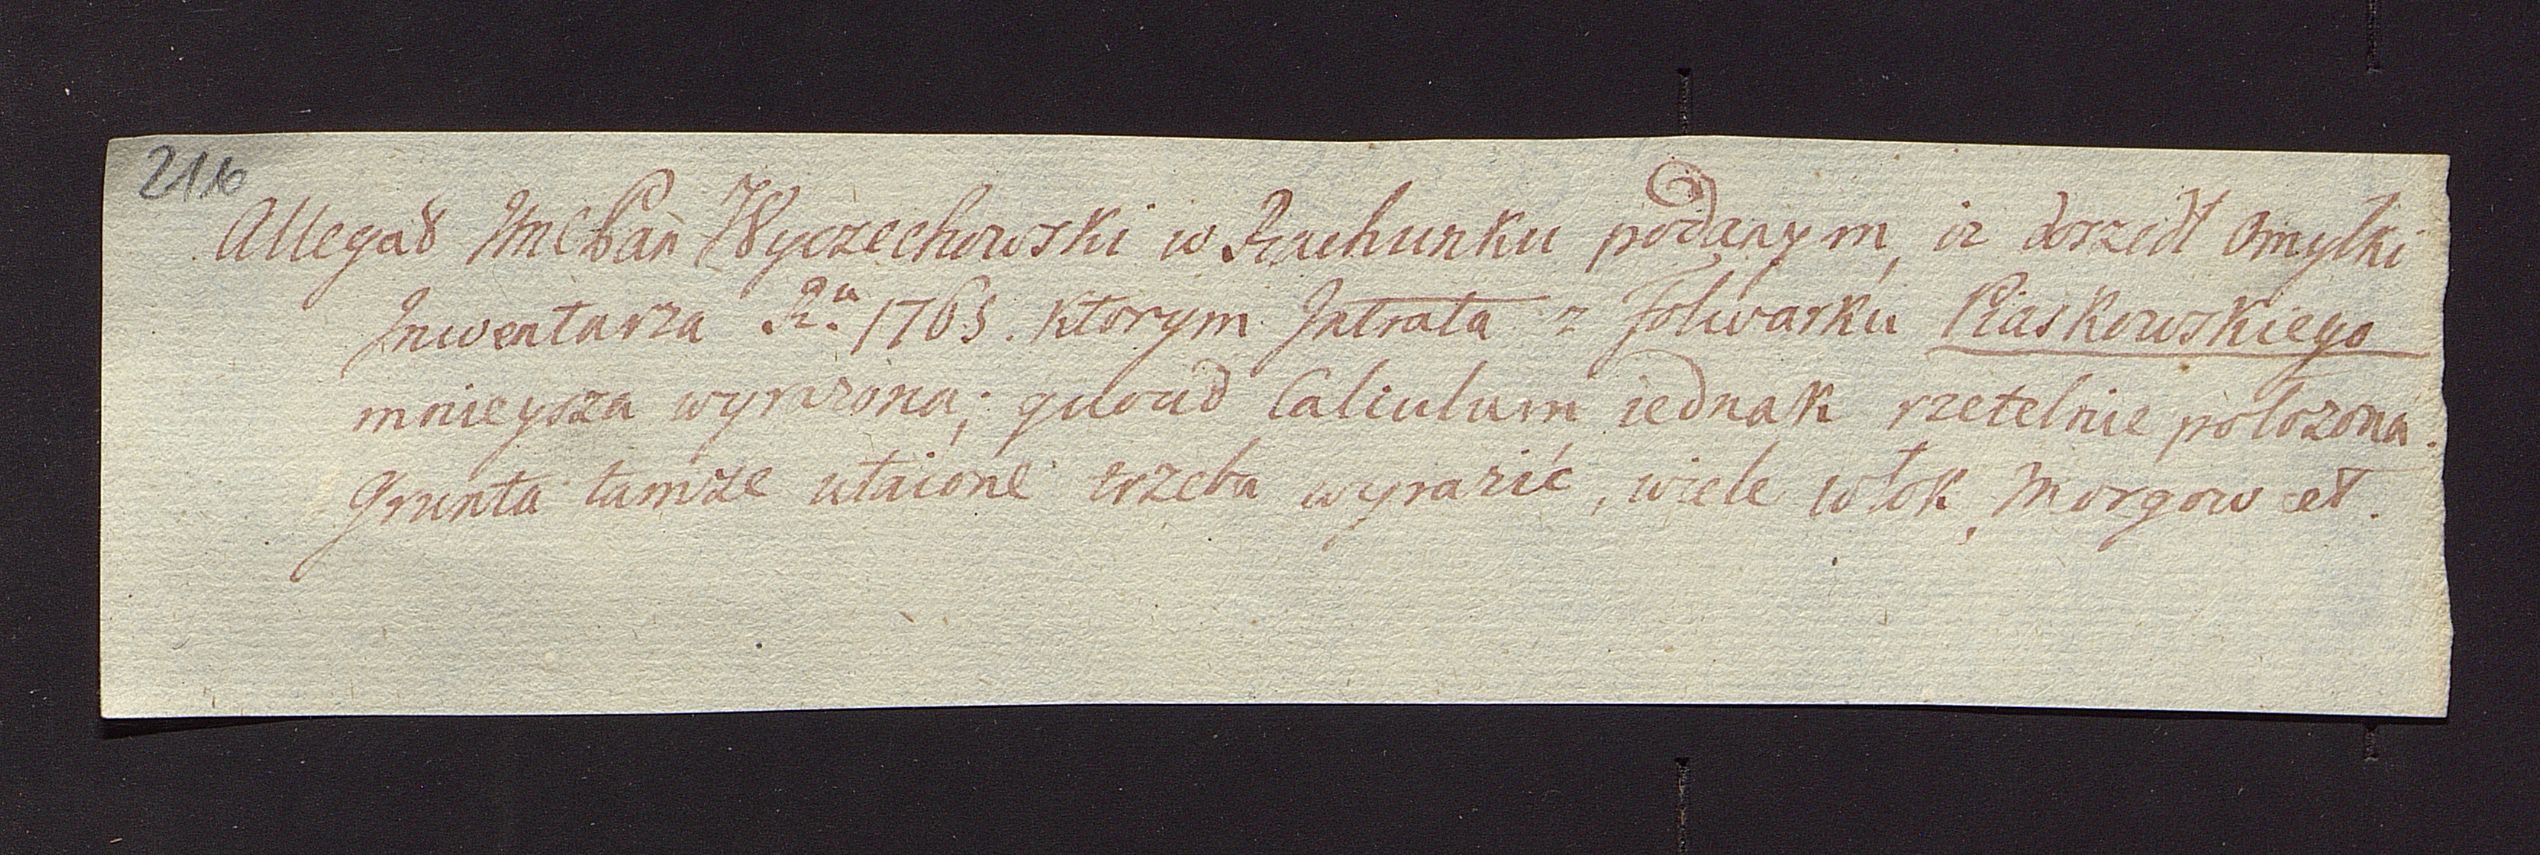 216
Allegad JmcPan Wyczechowski w Rachunku podanym, iz doszedł omyłki
Inwentarza Ru. 1763. ktorym Intrata z Folwarku Piaskowskiego
mnieysza wyrażona; quoad Calculum iednak rzetelnie położona.
Grunta tamże utaione trzeba wyrazić, wiele włok, morgow et.